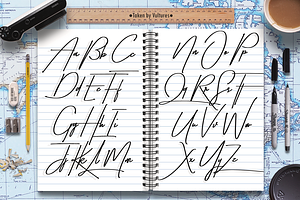 Taken by Vultures
Aa Bb Cc
Dd Ee Ff
Gg Hh Ii
Jj Kk Ll Mm
Nn Oo Pp
Qq Rr Ss Tt
Uu Vv Ww
Xx Yy Zz